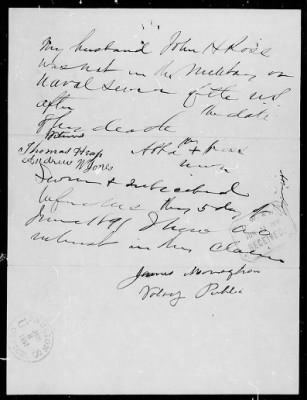 My husband John H Rose
was not in the Military or
Naval Service of the U.S.
after the date
of his death
Witness
Thomas Heap
Andrew W Jones
her
mark
Sworn & subscribed
before me this 5 day of
June 1891 I have no
interest in this Claim
James Monaghan
Notary Public